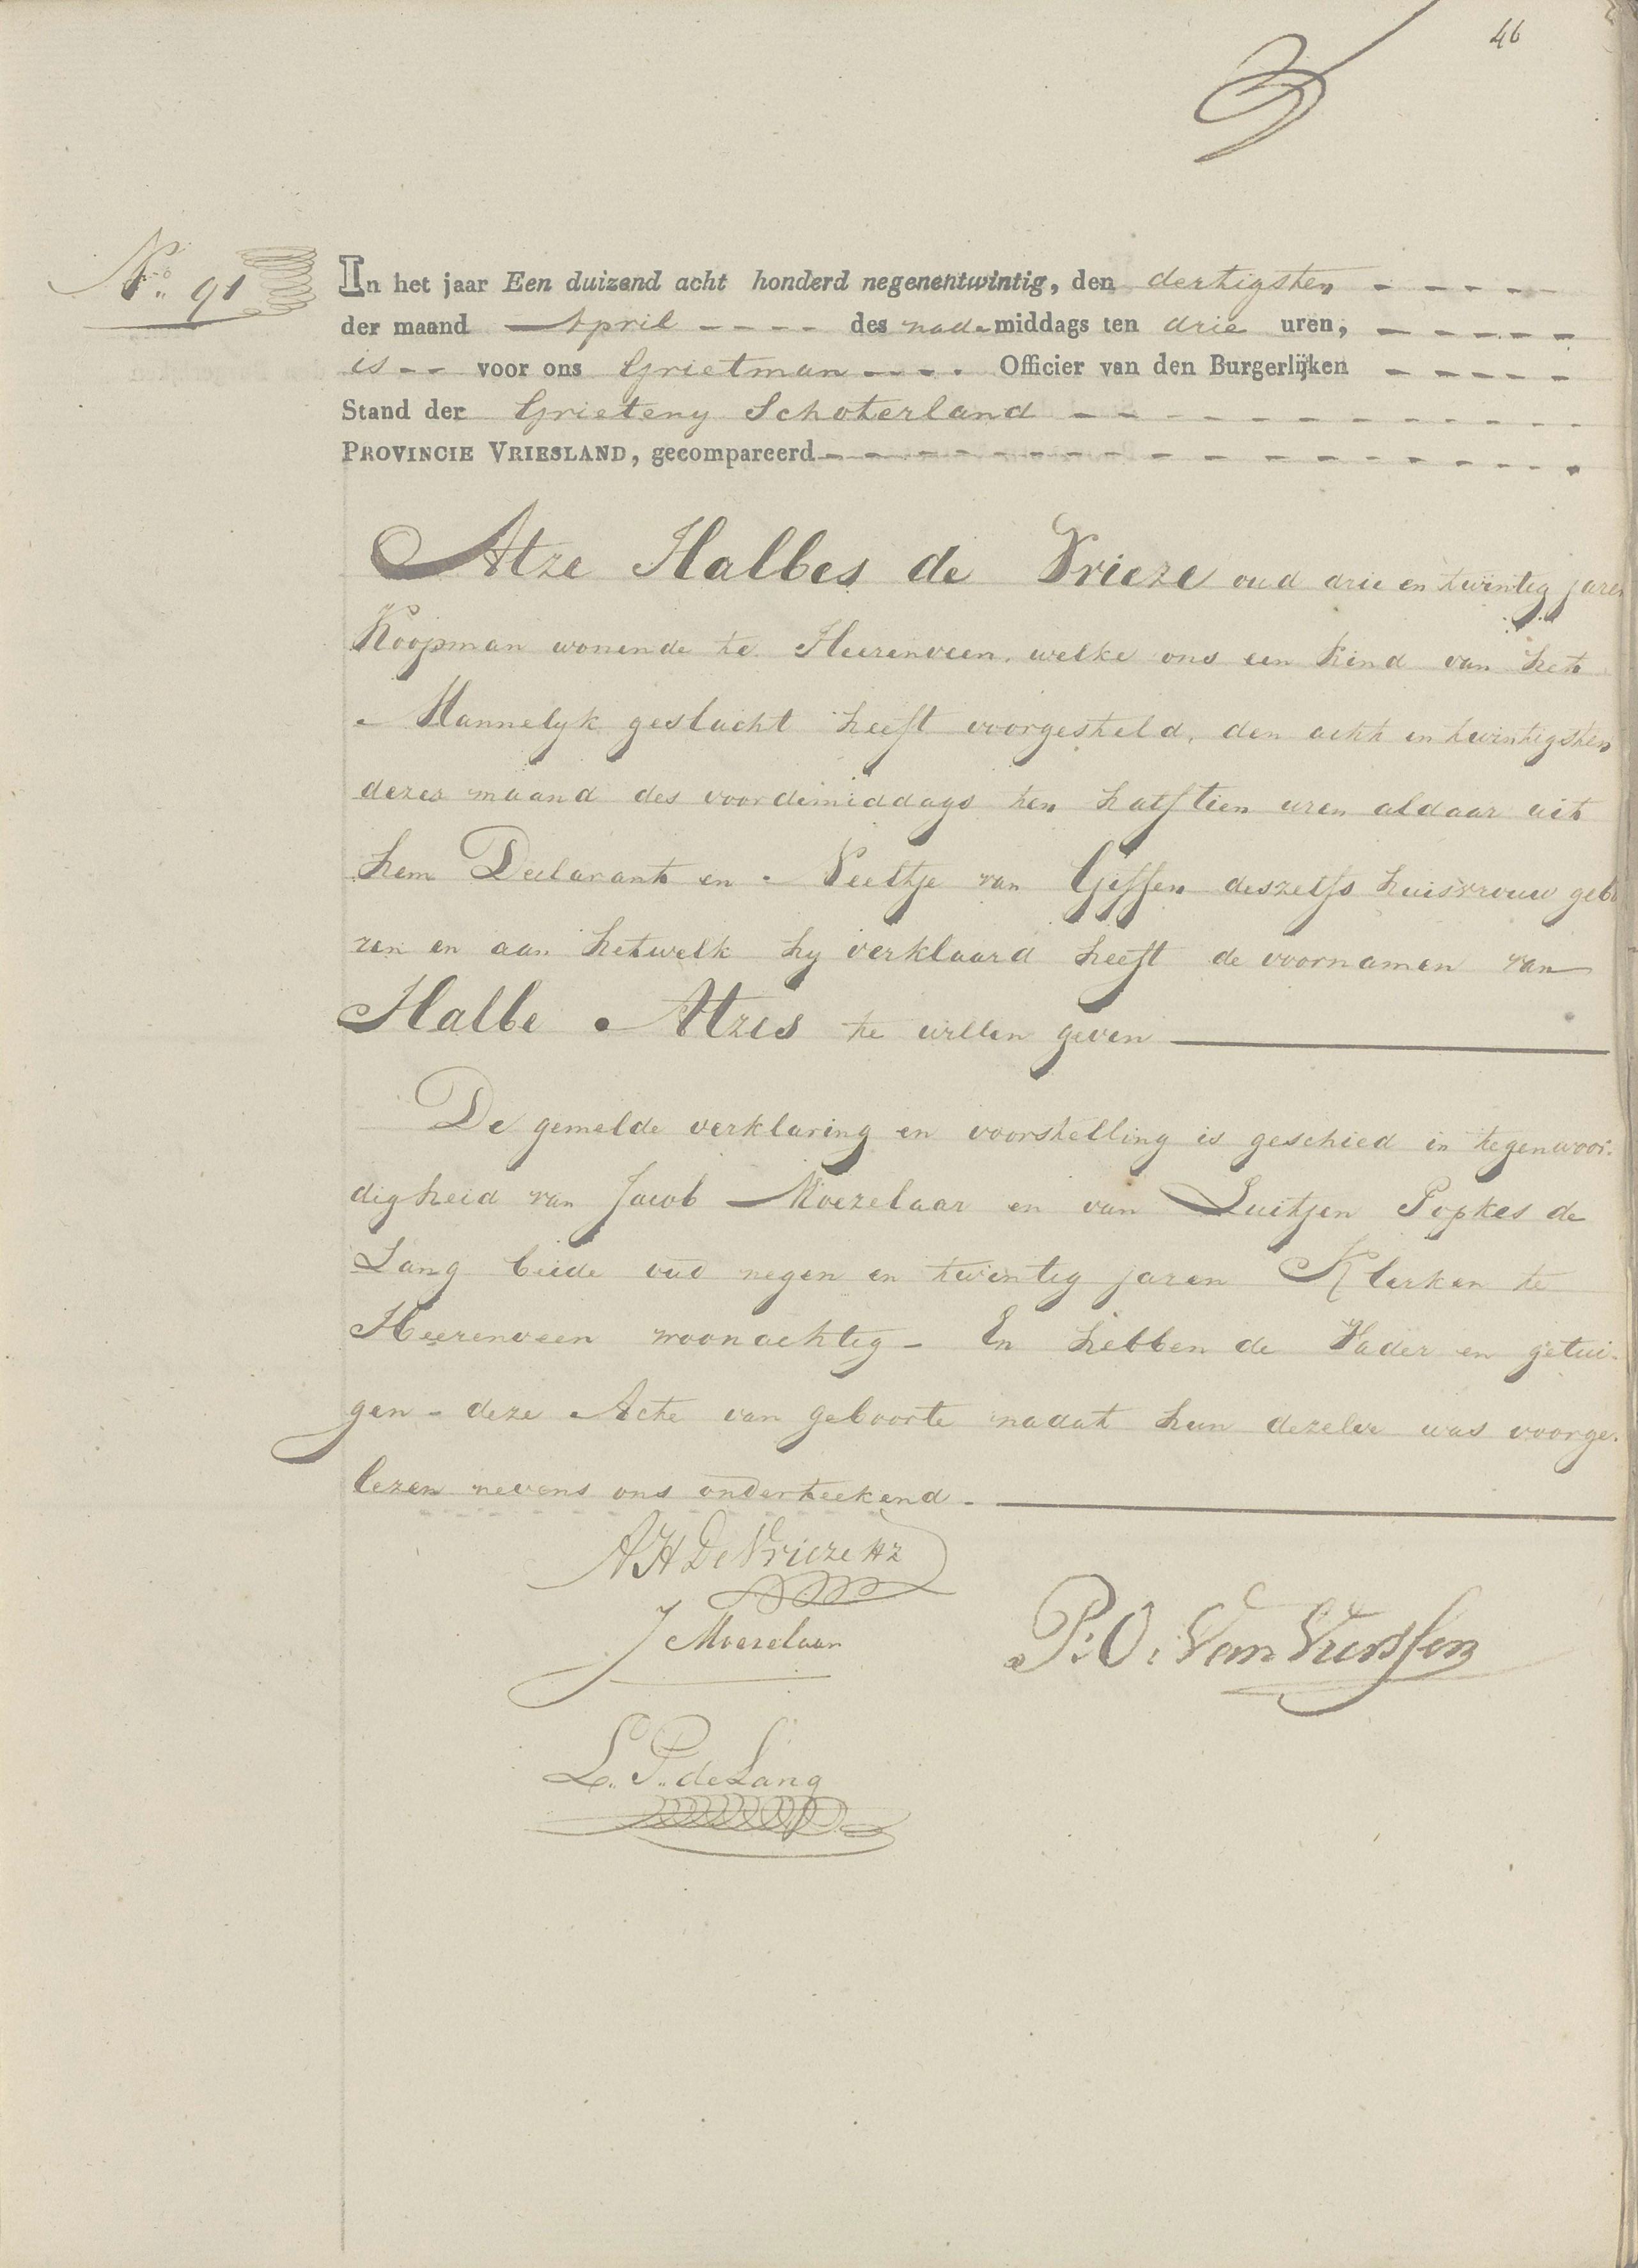 46
No. 91
In het jaar Een duizend acht honderd negenentwintig, den dertigsten
der maand April des nade middags ten drie uren,
is voor ons Grietman Officier van den Burgerlijken
Stand der Grieteny Schoterland
PROVINCIE VRIESLAND, gecompareerd
Atze Halbes de Vrieze oud drie en twintig jaren
Koopman wonende te Heerenveen, welke ons een kind van het
Mannelyk geslacht heeft voorgesteld, den acht en twintigsten
dezer maand des voordemiddags ten half tien uren aldaar uit
hem Declarant en Feeltje van Giffen deszelfs huisvrouw gebo
ren en aan hetwelk hy verklaard heeft de voornamen van
Halbe Atzes te willen geven
De gemelde verklaring en voorstelling is geschied in tegenwoor-
digheid van Jacob Moezelaar en van Luitjen Popkes de
Lang beide oud negen en twintig jaren Klerken te
Heerenveen woonachtig - En hebben de Vader en getui-
gen - deze Acte van geboorte nadat hun dezelve was voorge-
lezen nevens ons onderteekend -
AH De Vrieze Hz
J Moezelaar
P: O: Van
L. P. de Lang